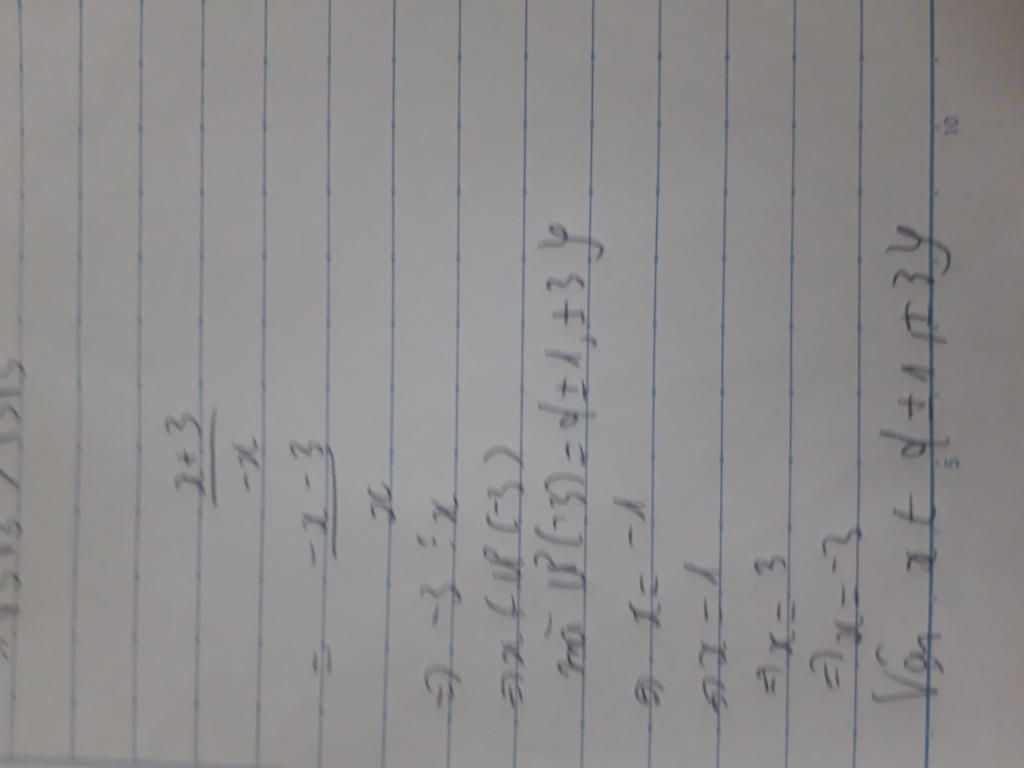 x+3
-x
= -x-3
x
=) -3 ⋮ x
=) x ∈ Ư(-3)
mà Ư(-3) = {±1, ±3}
=) x = -1
=) x = 1
=) x = 3
=) x = -3
Vậy x ∈ {±1, ±3}
5
10